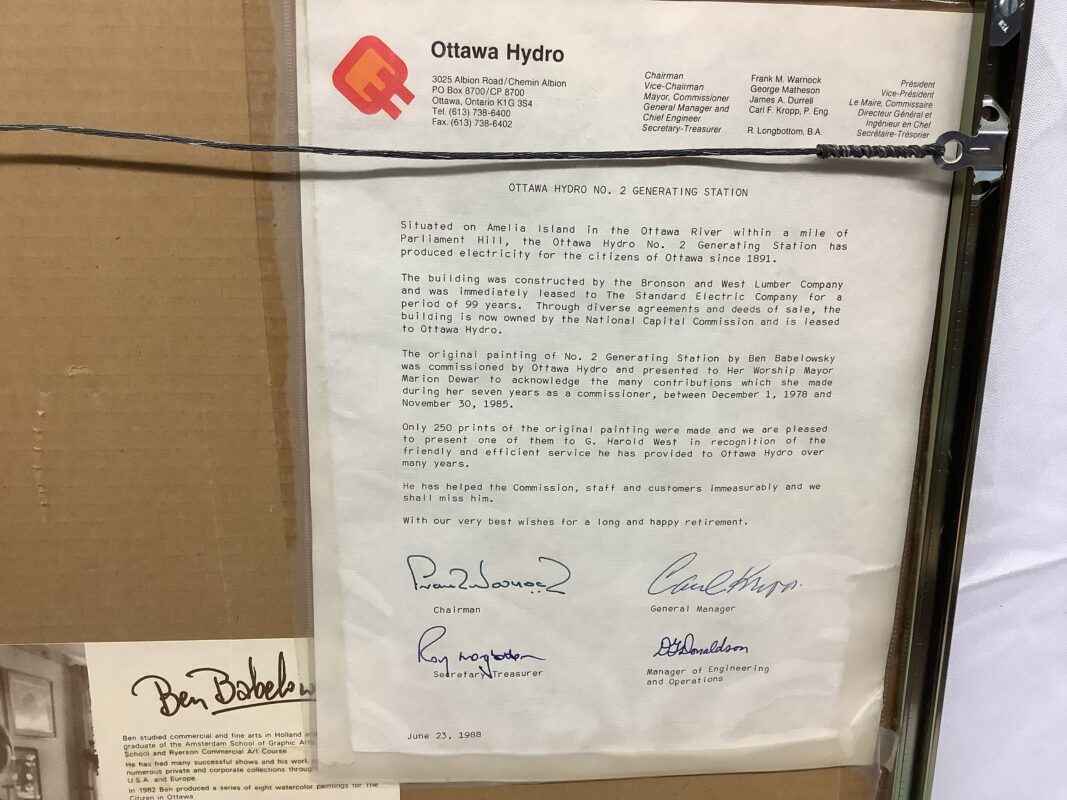 Ottawa Hydro
3025 Albion Road/Chemin Albion
PO Box 8700/CP 8700
Ottawa, Ontario K1G 3S4
Tel. (613) 738-6400
Fax. (613) 738-6402
Chairman
Vice-Chairman
Mayor, Commissioner
General Manager and
Chief Engineer
Secretary-Treasurer
Frank M. Warnock
George Matheson
James A. Durrell
Carl F. Kropp, P. Eng.
R. Longbottom, B.A.
Président
Vice-Président
Le Maire, Commissaire
Directeur Général et
Ingénieur en Chef
Secrétaire-Trésorier
OTTAWA HYDRO NO. 2 GENERATING STATION
Situated on Amelia Island in the Ottawa River within a mile of
Parliament Hill, the Ottawa Hydro No. 2 Generating Station has
produced electricity for the citizens of Ottawa since 1891.
The building was constructed by the Bronson and West Lumber Company
and was immediately leased to The Standard Electric Company for a
period of 99 years. Through diverse agreements and deeds of sale, the
building is now owned by the National Capital Commission and is leased
to Ottawa Hydro.
The original painting of No. 2 Generating Station by Ben Babelowsky
was commissioned by Ottawa Hydro and presented to Her Worship Mayor
Marion Dewar to acknowledge the many contributions which she made
during her seven years as a commissioner, between December 1, 1978 and
November 30, 1985.
Only 250 prints of the original painting were made and we are pleased
to present one of them to G. Harold West in recognition of the
friendly and efficient service he has provided to Ottawa Hydro over
many years.
He has helped the Commission, staff and customers immeasurably and we
shall miss him.
With our very best wishes for a long and happy retirement.
Chairman
Carl Kropp
General Manager
Roy Longbottom
Secretary Treasurer
D G Donaldson
Manager of Engineering
and Operations
June 23, 1988
Ben Babelow
Ben studied commercial and fine arts in Holland
graduate of the Amsterdam School of Graphic Arts
School and Ryerson Commercial Art Course
He has had many successful shows and his work
numerous private and corporate collections throug
U.S.A. and Europe.
In 1982 Ben produced a series of eight watercolor paintings for the
Citizen in Ottawa